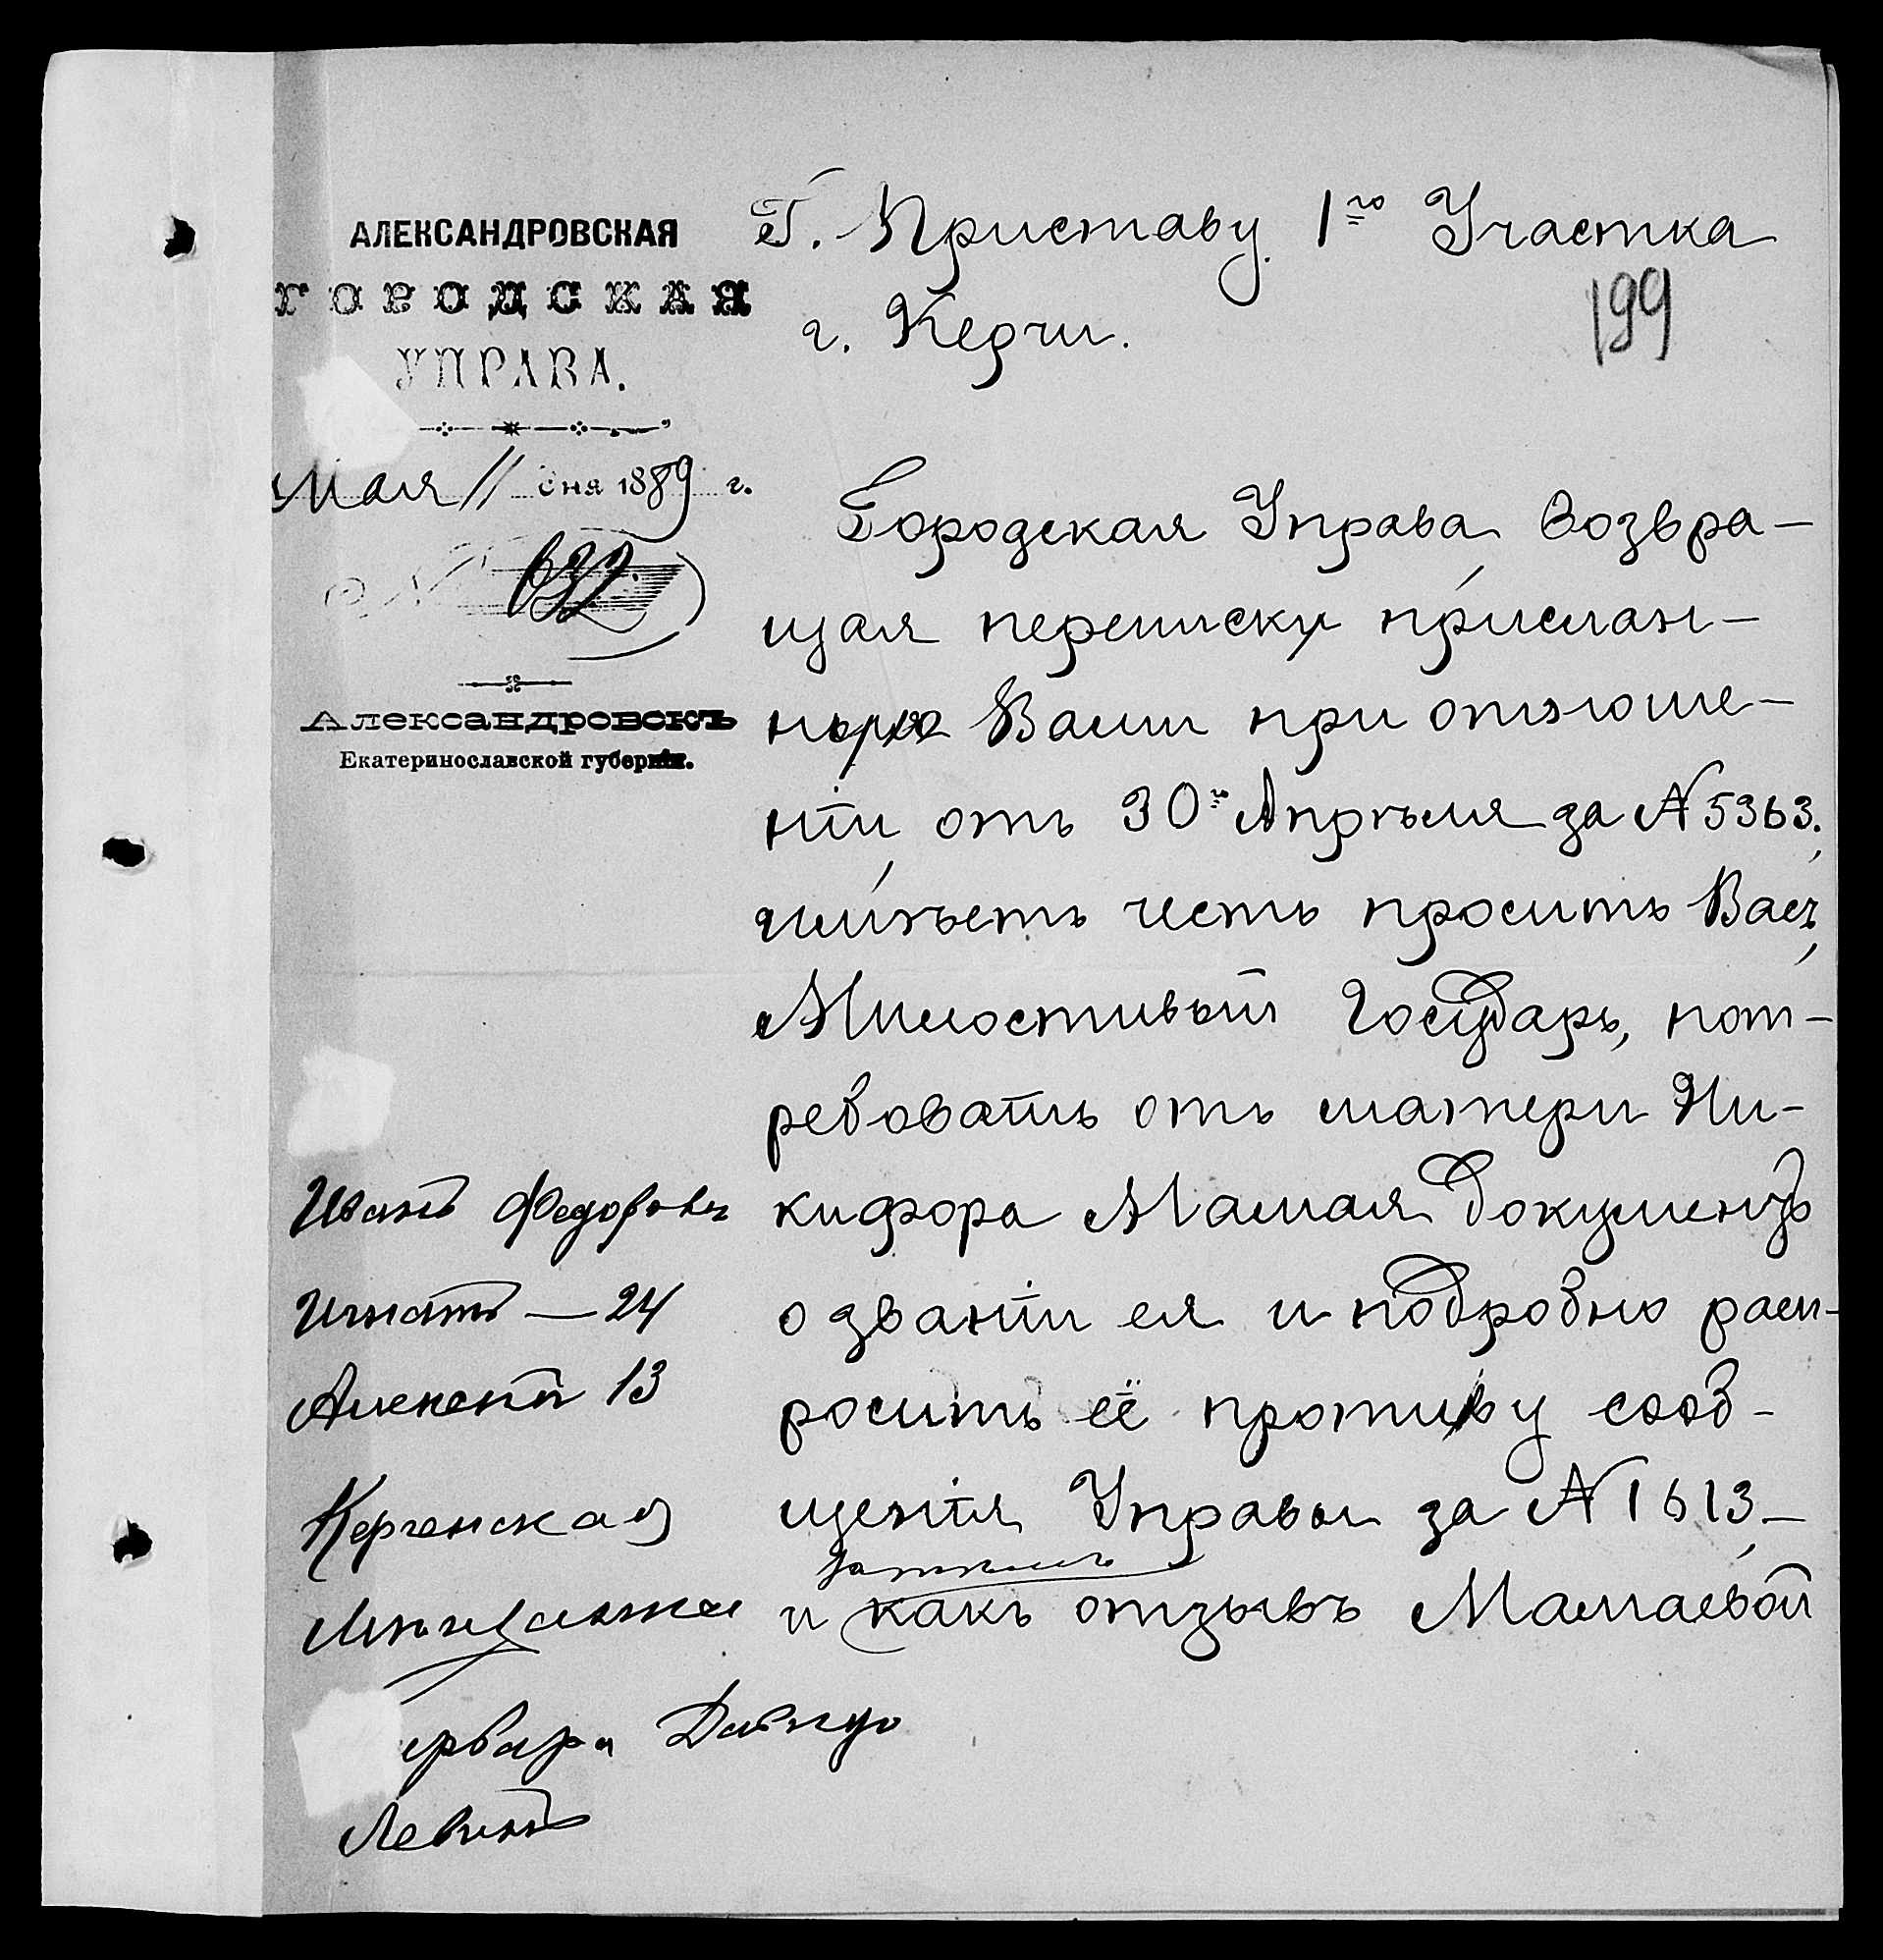 АЛЕКСАНДРОВСКАЯ
ГОРОДСКАЯ
УПРАВА.
Мая 11 дня 1889 г.
№ 632
Александровскъ
Екатеринославской губерніи.
Г. Приставу 1го Участка
г. Керчи.
199
Городская Управа возвра-
щая переписку прислан-
ную Вами при отноше-
ніи отъ 30го Апрѣля за №5363,
имѣетъ честь просить Васъ,
Милостивый Государь, пот-
ребовать отъ матери Ни-
кифора Мамая документъ
о званіи ея и подробно расп-
росить её противу сооб-
щенія Управы за №1613,-
и какъ отзывъ Мамаевой
Иванъ Федоровъ
Игнатъ — 24
Алексѣй 13
Керченская
Левинъ